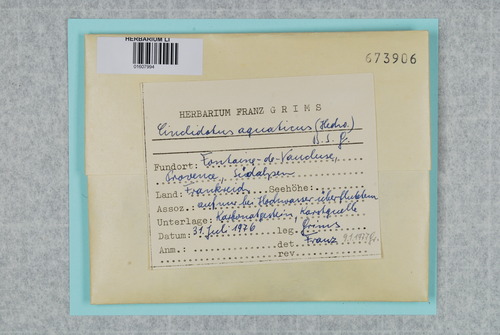 HERBARIUM LI
01607994
673906
HERBARIUM FRANZ GRIMS
Cinclidotus aquaticus (Hedw.)
B. S. G.
Fundort: Fontaine-de-Vaucluse,
Provence, Südalpen
Land: Frankreich Seehöhe:
Assoz.: auf nur bei Hochwasser überflutetem
Unterlage: Karbonatgestein, Karstquelle
Datum: 31. Juli 1976 leg. Grims
Anm.: det. Franz
rev.